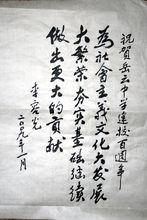 祝贺岳云中学建校百週年
为社会主义文化大发展
大繁荣夯实基础继续
做出更大的贡献
李容光
二〇〇九年一月